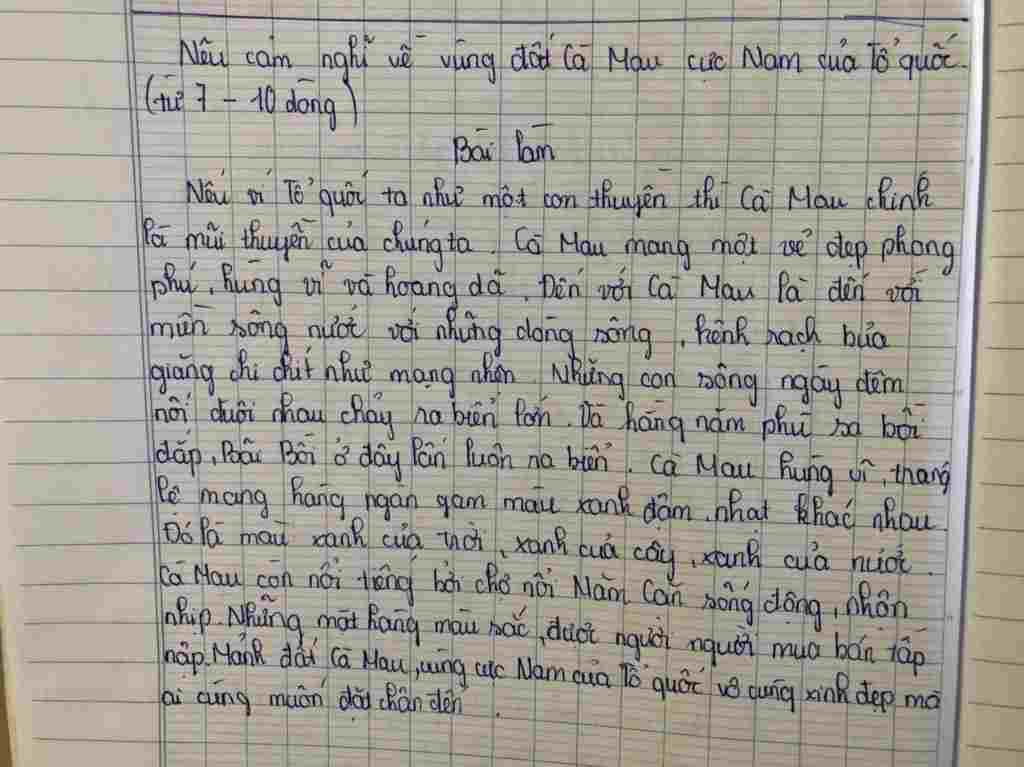 Nêu cảm nghĩ về vùng đất Cà Mau cực Nam của Tổ quốc.
(từ 7 - 10 dòng)
Bài làm
Nếu ví Tổ quốc ta như một con thuyền thì Cà Mau chính
là mũi thuyền của chúng ta. Cà Mau mang một vẻ đẹp phong
phú, hùng vĩ và hoang dã. Đến với Cà Mau là đến với
miền sông nước với những dòng sông, kênh rạch bủa
giăng chi chít như mạng nhện. Những con sông ngày đêm
nối đuôi nhau chảy ra biển lớn. Và hàng năm phù sa bồi
đắp, bãi bồi ở đây lấn luôn ra biển. Cà Mau hùng vĩ, tráng
lệ mang hàng ngàn gam màu xanh đậm, nhạt khác nhau.
Đó là màu xanh của trời, xanh của cây, xanh của nước.
Cà Mau còn nổi tiếng bởi chợ nổi Năm Căn sống động, nhộn
nhịp. Những mặt hàng màu sắc, được người người mua bán tấp
nập. Mảnh đất Cà Mau, vùng cực Nam của Tổ quốc vô cùng xinh đẹp mà
ai cũng muốn đặt chân đến.